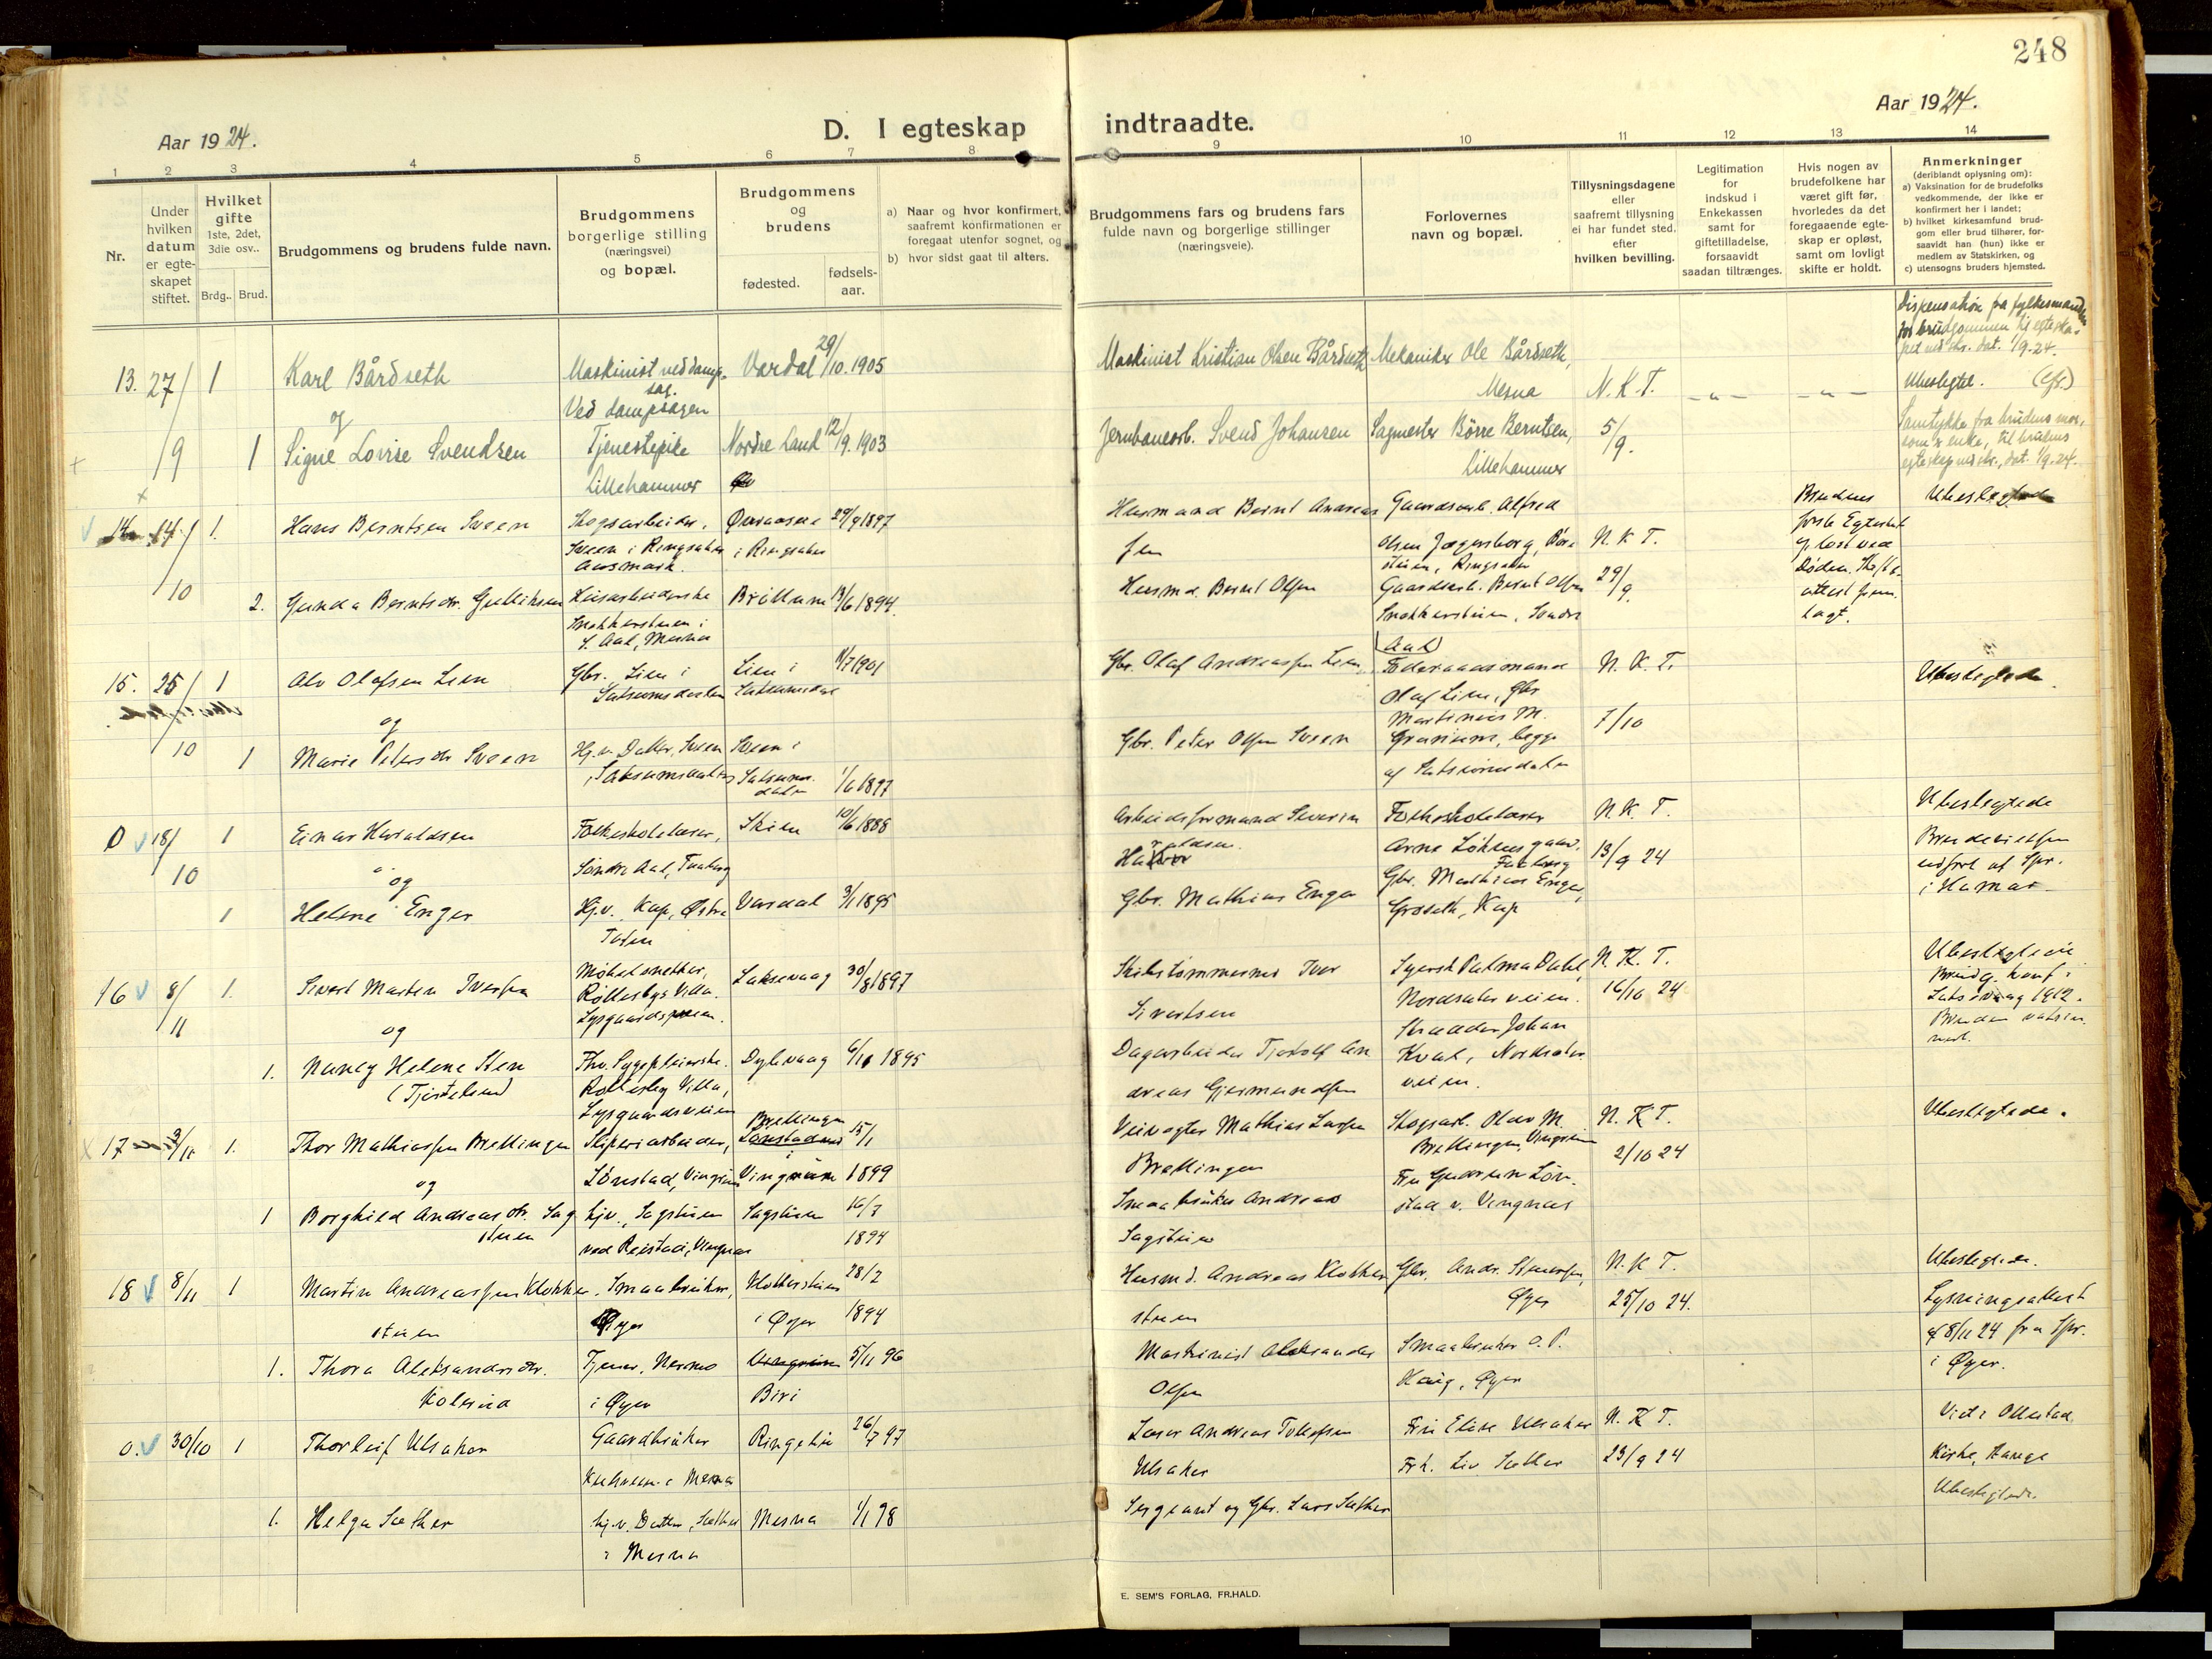 248
Aar 1924.
D. I egteskap
indtraadte.
Aar 1924.
1 2 3 4 5 6 7 8
9 10 11 12 13 14
Nr.
Under hvilken datum er egte-skapet stiftet.
Hvilket gifte
1ste, 2det, 3die osv..
Brdg.. Brud.
Brudgommens og brudens fulde navn.
Brudgommens
borgerlige stilling
(næringsvei)
og bopæl.
Brudgommens
og
brudens
fødested.
fødsels-
aar.
a) Naar og hvor konfirmert,
saafremt konfirmationen er
foregaat utenfor sognet, og
b) hvor sidst gaat til alters.
Brudgommens fars og brudens fars
fulde navn og borgerlige stillinger
(næringsveie).
Forlovernes
navn og bopæl.
Tillysningsdagene
eller
saafremt tillysning
ei har fundet sted.
efter
hvilken bevilling.
Legitimation
for
indskud i
Enkekassen
samt for
giftetilladelse,
forsaavidt
saadan tiltrænges.
Hvis nogen av
brudefolkene har
været gift før,
hvorledes da det
foregaaende egte-
skap er opløst,
samt om lovligt
skifte er holdt.
Anmerkninger
(deriblandt oplysning om):
a) Vaksination for de brudefolks
vedkommende, der ikke er
konfirmert her i landet;
b) hvilket kirkesamfund brud-
gom eller brud tilhører, for-
saavidt han (hun) ikke er
medlem av Statskirken, og
c) utensogns bruders hjemsted.
13. 27/9 1 Karl Bårdseth
Maskinist ved damp-
sag.
Ved dampsagen
Vardal 29/10. 1905
Maskinist Kristian Olsen Bårdseth
Mekaniker Ole Bårdseth,
Mesna
N. K. T.
Dispensation fra fylkesmanden
for brudgommen til egteska-
pet ved skr. dat. 1/9-24.
Ubeslegtet.
og
1 Signe Lovise Svendsen
Tjenestepike
Lillehammer
Nordre Land 12/9. 1903
Jernbanearb. Svend Johansen
Sagmester Börre Berntsen,
Lillehammer
5/9.
Samtykke fra brudens mor,
som er enke, til brudens
egteskap ved skr., dat. 1/9.24.
14/10 1. Hans Berntsen Sveen
Skogsarbeider,
Sveen i Ringsaker
Aasmark.
i Ringsaker 29/9 1897
Husmand Bernt Andreas
sen
Gaardsarb. Alfred
Olsen Jægersborg,
Ringsaker
N. K. T.
29/9
Brudens
første Egteskab
opløst ved
Døden. Skifte-
attest frem-
lagt.
Ubeslegtede
2. Gunda Berntsdtr. Gulliksen
Husarbeiderske
Snekkerstuen i
S. Aal, Mesna
Brøttum 1894.
Husmd. Bernt Olsen
Gaardsarb. Bernt Olsen
Snekkerstuen, Søndre
Aal
15. 25/10 1 Alv Olafsen Lien
Gbr. Lien i
Saksumsdalen
Lien i
Saksumsdal 1901
Gbr. Olaf Andreassen Lien
Föderaadsmand
Olaf Lien, Gbr
N. K. T.
Ubeslegtede.
og
1 Marie Petersdtr Sveen
Hj. v. Datter, Sveen
Saksumsdalen
Sveen i
Saksums-
dalen 1/6 1897
Gbr. Peter Olsen Sveen
Martinius M.
Granum, begge
af Saksumsdalen
7/10
0 18/10 1 Einar Haraldsen
Folkeskolelærer,
Søndre Aal, Faaberg
Skien 10/6 1888
Arbeidsformand Severin
Haraldsen.
Folkeskolelærer
Arne Løkensgaard,
Faaberg
N. K. T.
13/9 24
Ubeslegtede
Brudevielsen
udført af Spr.
i Hamar.
og
1 Helene Enger
Hj.v. Kap, Østre
Toten
Vardal 3/1 1895
Gbr. Mathias Enger
Gbr. Mathias Enger,
Kap
16 8/11 1. Sivert Martin Iversen
Møbelsnekker,
Röllesbys Villa.
Lysgaardsveien.
Laksevaag 30/8 1897
Skibstømmermd Iver
Sivertsen
Sygersk Palma Dahl,
Nordsæterveien.
N. K. T.
16/10 24
Ubeslegtede
Brudg. konf. i
Laksevaag 1912.
Bruden vaksi-
nert.
og
1. Nancy Helene Sten
(Tjøstelsen)
Fhv. Sygepleierske.
Röllesby Villa,
Lysgaardsveien
Dybvaag 6/11 1895
Dagarbeider Tjostolf An
dreas Gjermundsen
Skrædder Johan
Kvael, Nordsæter
veien.
17 1. Thor Mathiassen Brettingen
Sliperiarbeider,
Lönstad, Vingrom
Brettingen
Vingrom 15/1 1899
Veivogter Mathias Larsen
Brettingen
Skogsarb. Olav M.
Brettingen, Vingrom
N. K. T.
2/10 24
Ubeslegtede.
og
1 Borghild Andreasdtr. Sag
stuen
hjv., Sagstuen
ved Reistad, Vingnes
Sagstuen 16/7 1894
Smaabruker Andreas
Sagstuen
Fru Gudrun Løn-
stad v. Vingnes
18 8/11 1 Martin Andreassen Klokker
stuen
Smaabruker,
Øyer
Klokkerstuen
i Øyer 28/2 1894
Husmd. Andreas Klokker
stuen
Gbr. Andr. Stuersen,
Øyer
N. K. T.
25/10 24.
Ubeslegtede.
Lysningsattest
af 8/11 24 fra Spr.
i Øyer.
1. Thora Aleksandersdtr.
Kolerud
Tjener, Nermo
i Øyer
Biri 5/11 96
Maskinist Aleksander
Olsen
Smaabruker O. P.
Haug, Øyer
0. 30/10 1 Thorleif Ulsaker
Gaardbruker
Ringebu 26/7 97
Lærer Andreas Tollefsen
Ulsaker
Fru Elise Ulsaker
N. K. T.
23/9 24
Viet i Ullestad
Kirke, Hauge
Ubeslegtede.
1. Helga Sæther
hj. v. Datter, Sæther
i Mesna
Mesna 1/1 98
Sergeant og Gbr. Lars Sæther
Frk. Liv Sæther
E. SEM'S FORLAG, FR.HALD.